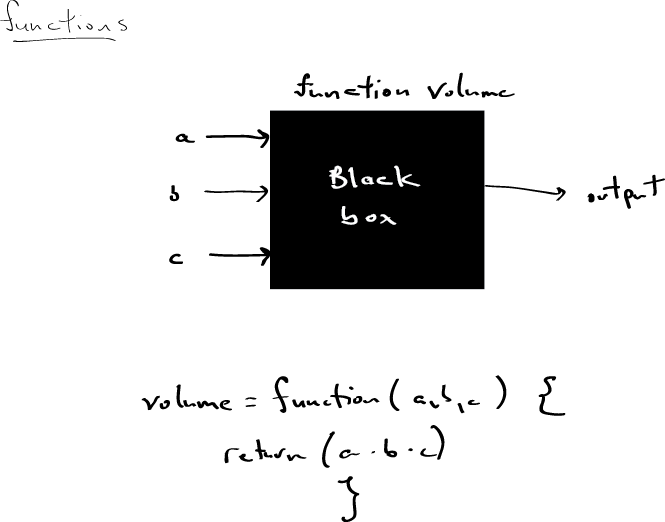 functions
function volume
a
b
c
Black
box
output
volume = function(a,b,c) {
return(a·b·c)
}